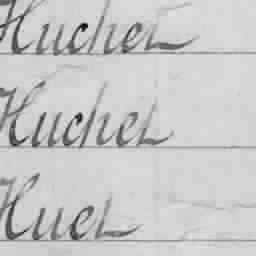 Huchet
Huchet
Huet